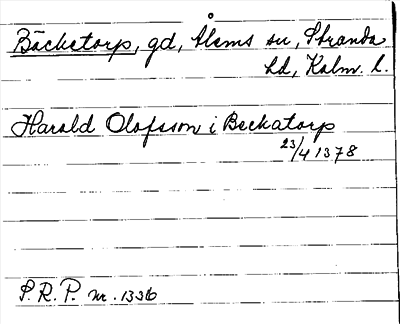 Bäckatorp, gd, Ålems sn, Stranda
hd, Kalm. l.
Harald Olofsson i Beckatorp
23/4 1378
S.R.P. nr. 1336